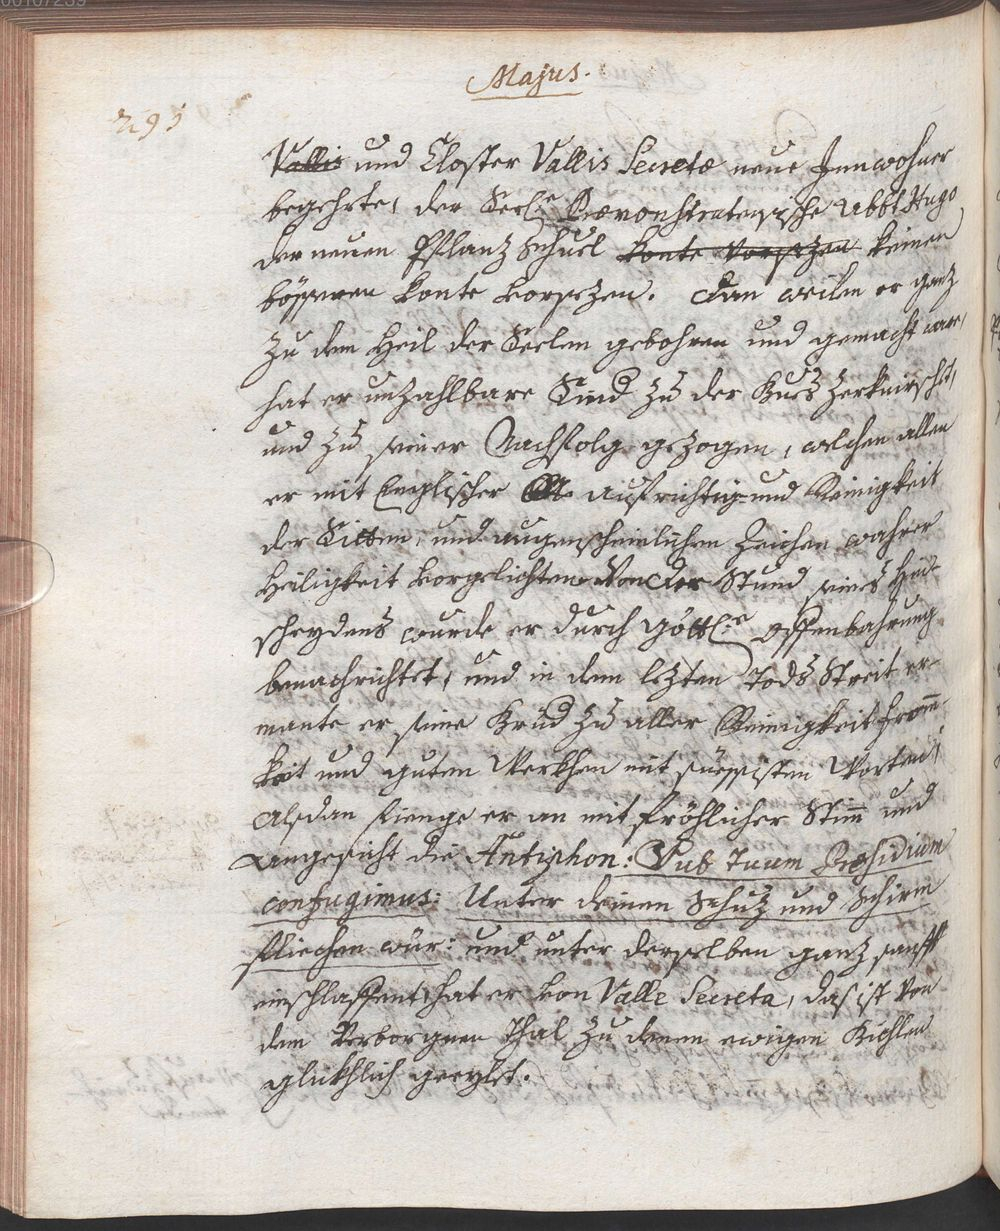 00107239
Majus.
295
Vallis und Closter Vallis Secretæ neue Innwohner
begehrte, der Seel. Præmonstratensische Abbt Hugo
der neuen Pflanz Schuel konte vorsezen keinen
bösseren konte vorsezen. Dan weilen er ganz
zu dem Heil der Seelen gebohren und gemacht ware,
hat er unzahlbare Sind zu der Bues zerknirscht,
und zu seiner Nachfolg gezogen, welchen allen
er mit Englischer aufrichtig und Reinigkeit
der Sitten, und augenscheinlichen Zeichen wahrer
Heiligkeit vorgelichten. Von der Stund seines Hin-
scheydens wurde er durch göttl. offenbahrung
benachrichtet, und in dem lezten Tods Streit er-
mante er seine Brüd. zu aller Reinigkeit from̄-
keit und guten Werkhen mit süessisten Worten,
Alsdan fienge er an mit fröhlicher Stim̄ und
angesicht die Antiphon: Sub Tuum Præsidium
confugimus: Unter deinen Schuz und Schirm
fliechen wür: und unter derselben ganz sanfft
einschlaffent, hat er von Valle Secreta, das ist von
dem Verborgnen Thal zu denen ewigen Bichlen
glükhlich geeylet.